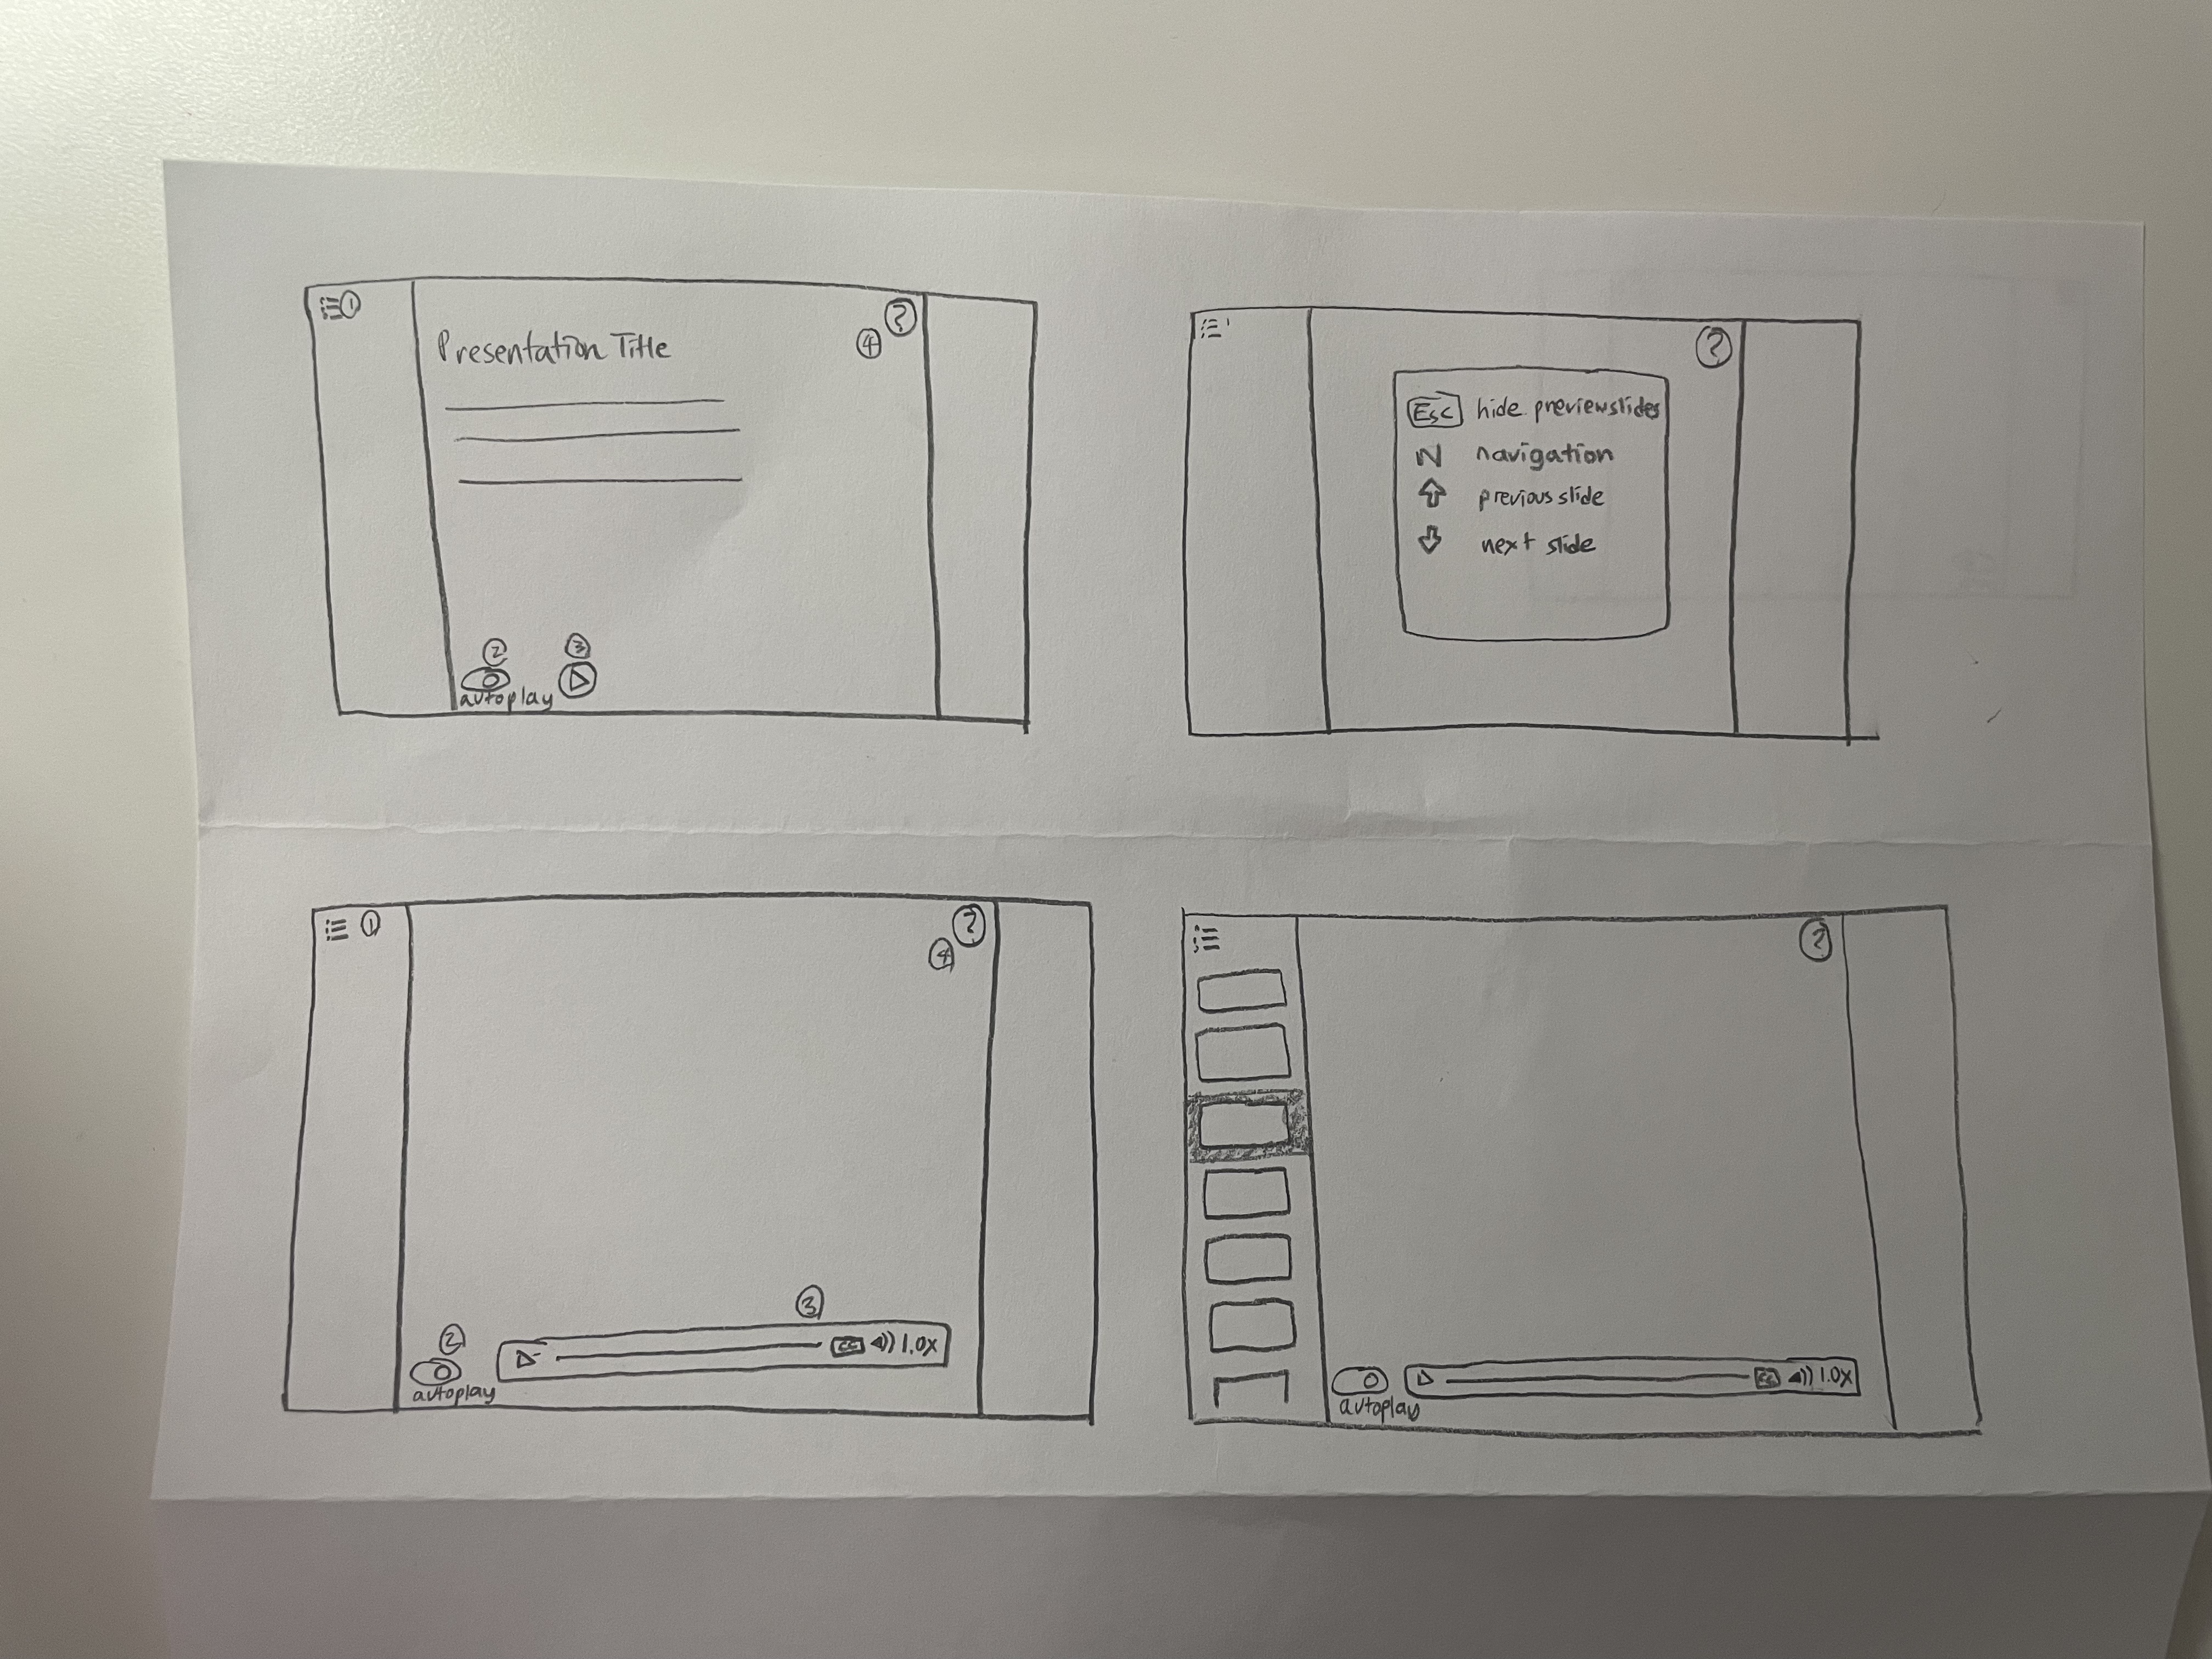 1
?
4
Presentation Title
2
3
autoplay
?
Esc hide previewslides
N navigation
previous slide
next slide
1
?
4
3
2
CC 1.0x
autoplay
?
CC 1.0x
autoplay